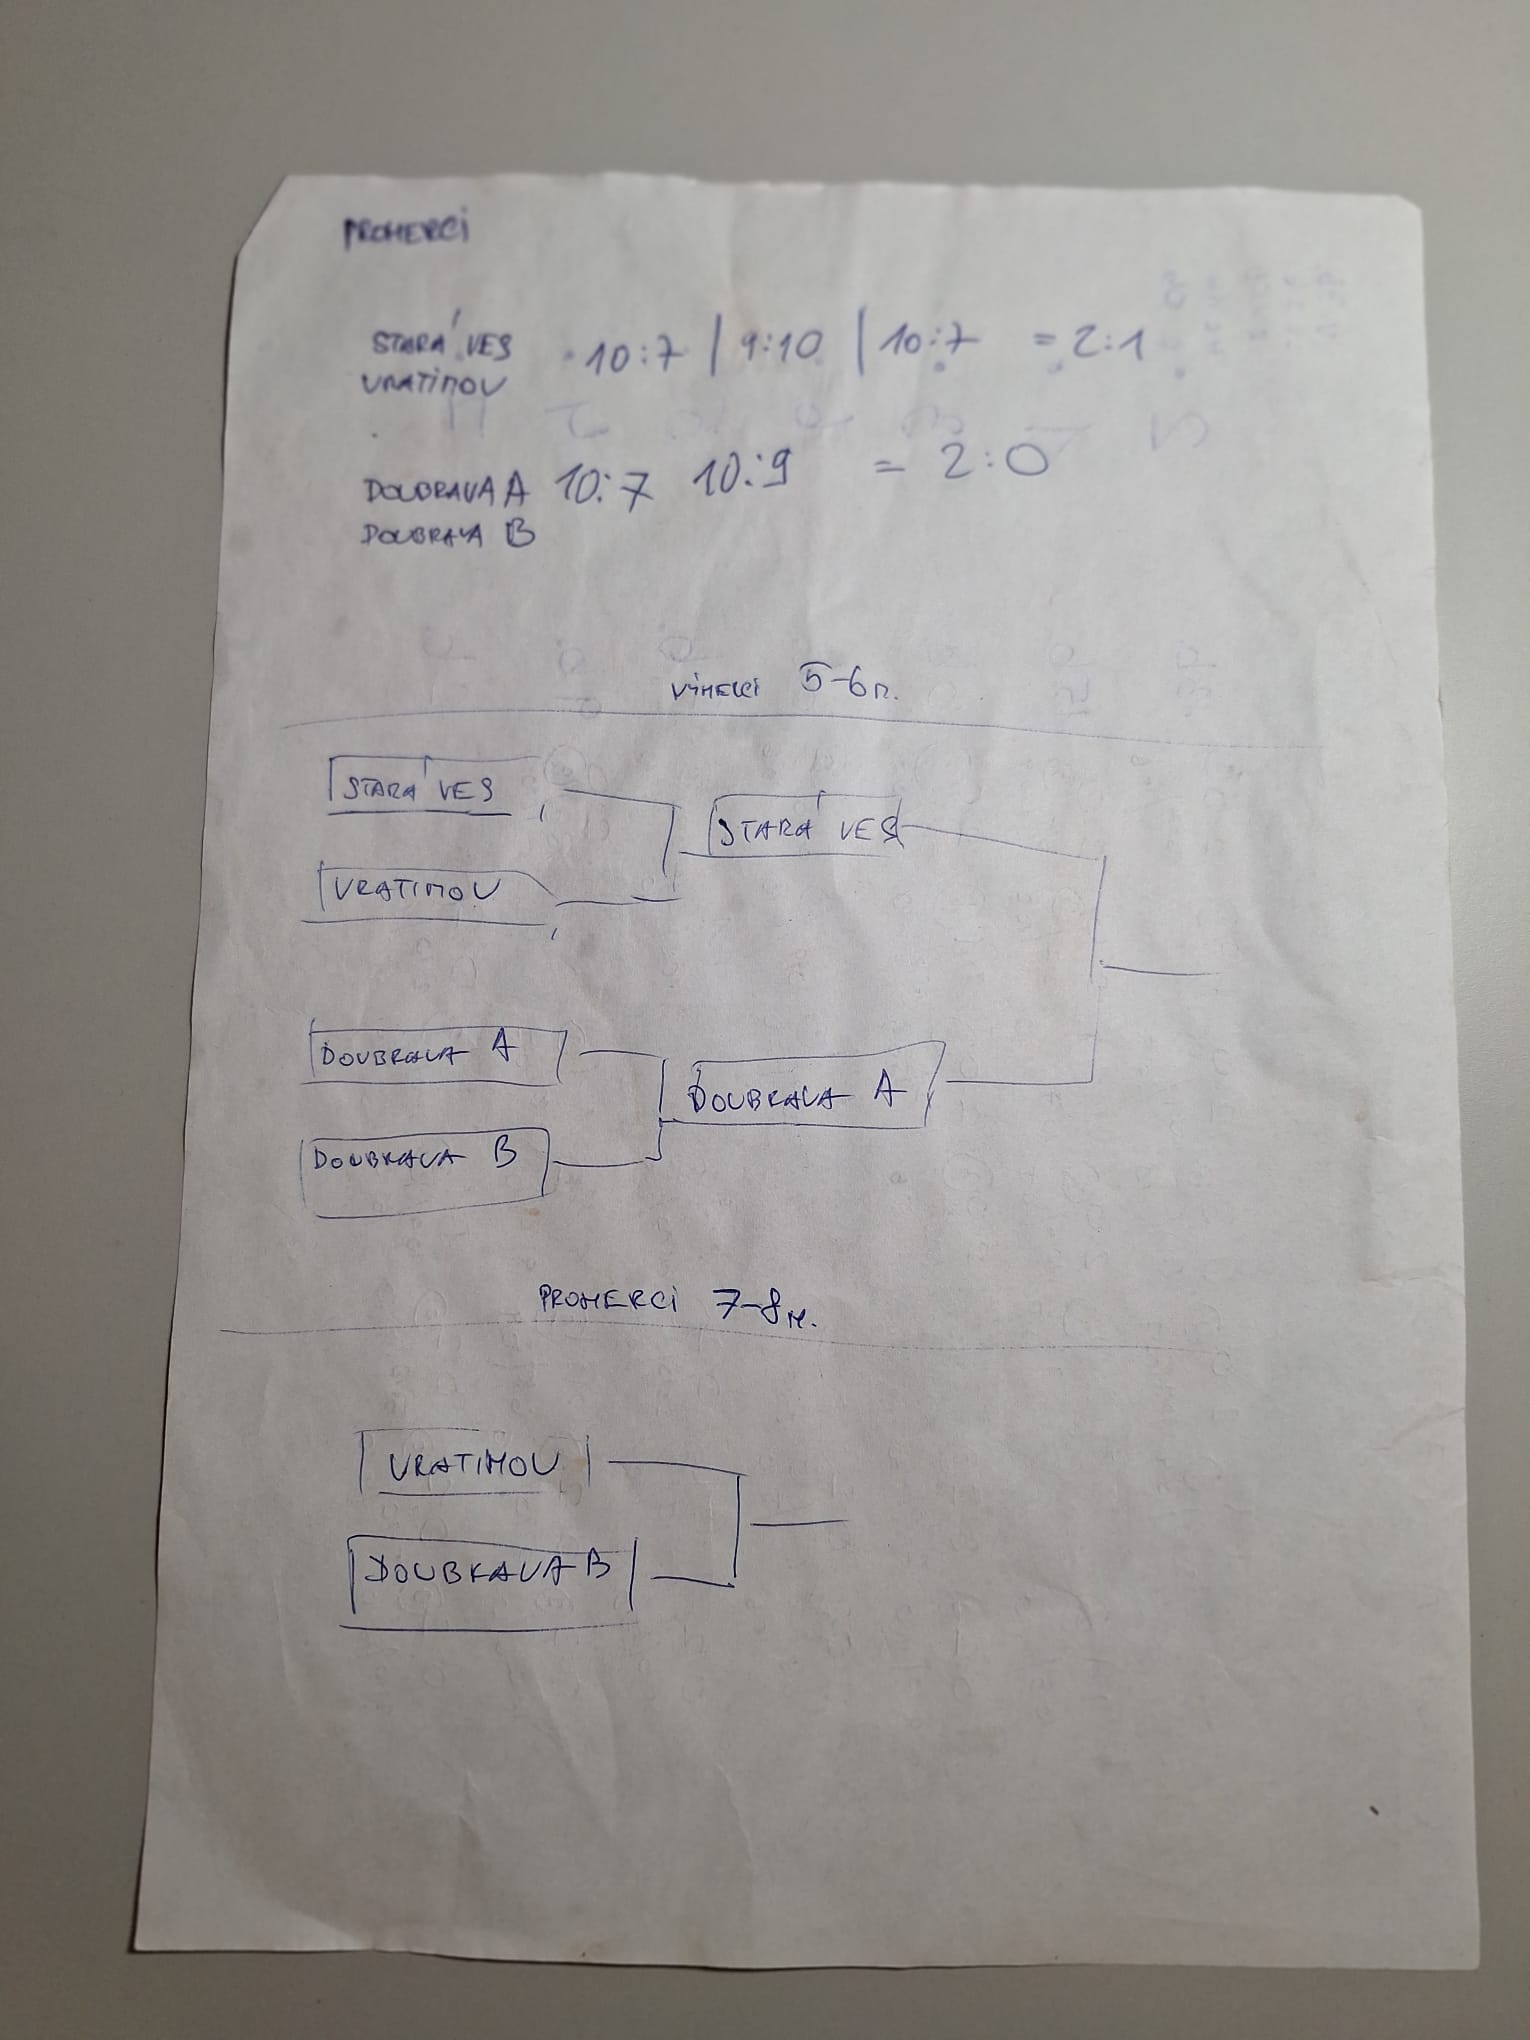 PROHERCI
STARÁ VES 10:7 | 9:10 | 10:7 = 2:1
VRATIMOV
DOUBRAVA A 10:7 10:9 = 2:0
DOUBRAVA B
VÍHERCI 5-6 m.
STARÁ VES
STARÁ VES
VRATIMOV
DOUBRAVA A
DOUBRAVA A
DOUBRAVA B
PROHERCI 7-8 m.
VRATIMOV
DOUBRAVA B